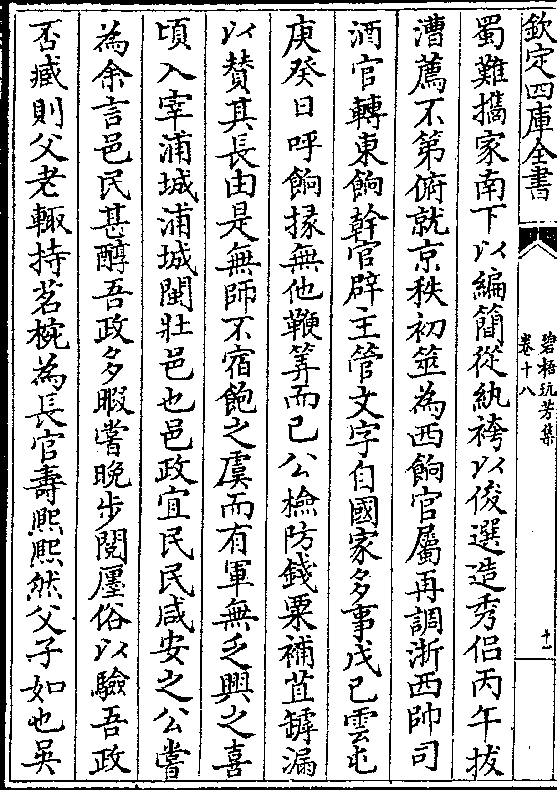 欽定四庫全書
碧梧玩芳集
卷十八
十一
蜀難攜家南下以編簡從紈袴以俊選造秀侣丙午拔
漕薦不第俯就京秩初筮為西餉官屬再調浙西帥司
酒官轉東餉幹官辟主管文字自國家多事戊已雲屯
庚癸日呼餉掾無他鞭筭而已公檢防錢粟補苴罅漏
以贊其長由是無師不宿飽之虞而有軍無乏興之喜
頃入宰浦城浦城閩壯邑也邑政宜民民咸安之公嘗
為余言邑民甚醇吾政多暇嘗晚步閱廛俗以驗吾政
否臧則父老輙持茗椀為長官壽熈熈然父子如也吳